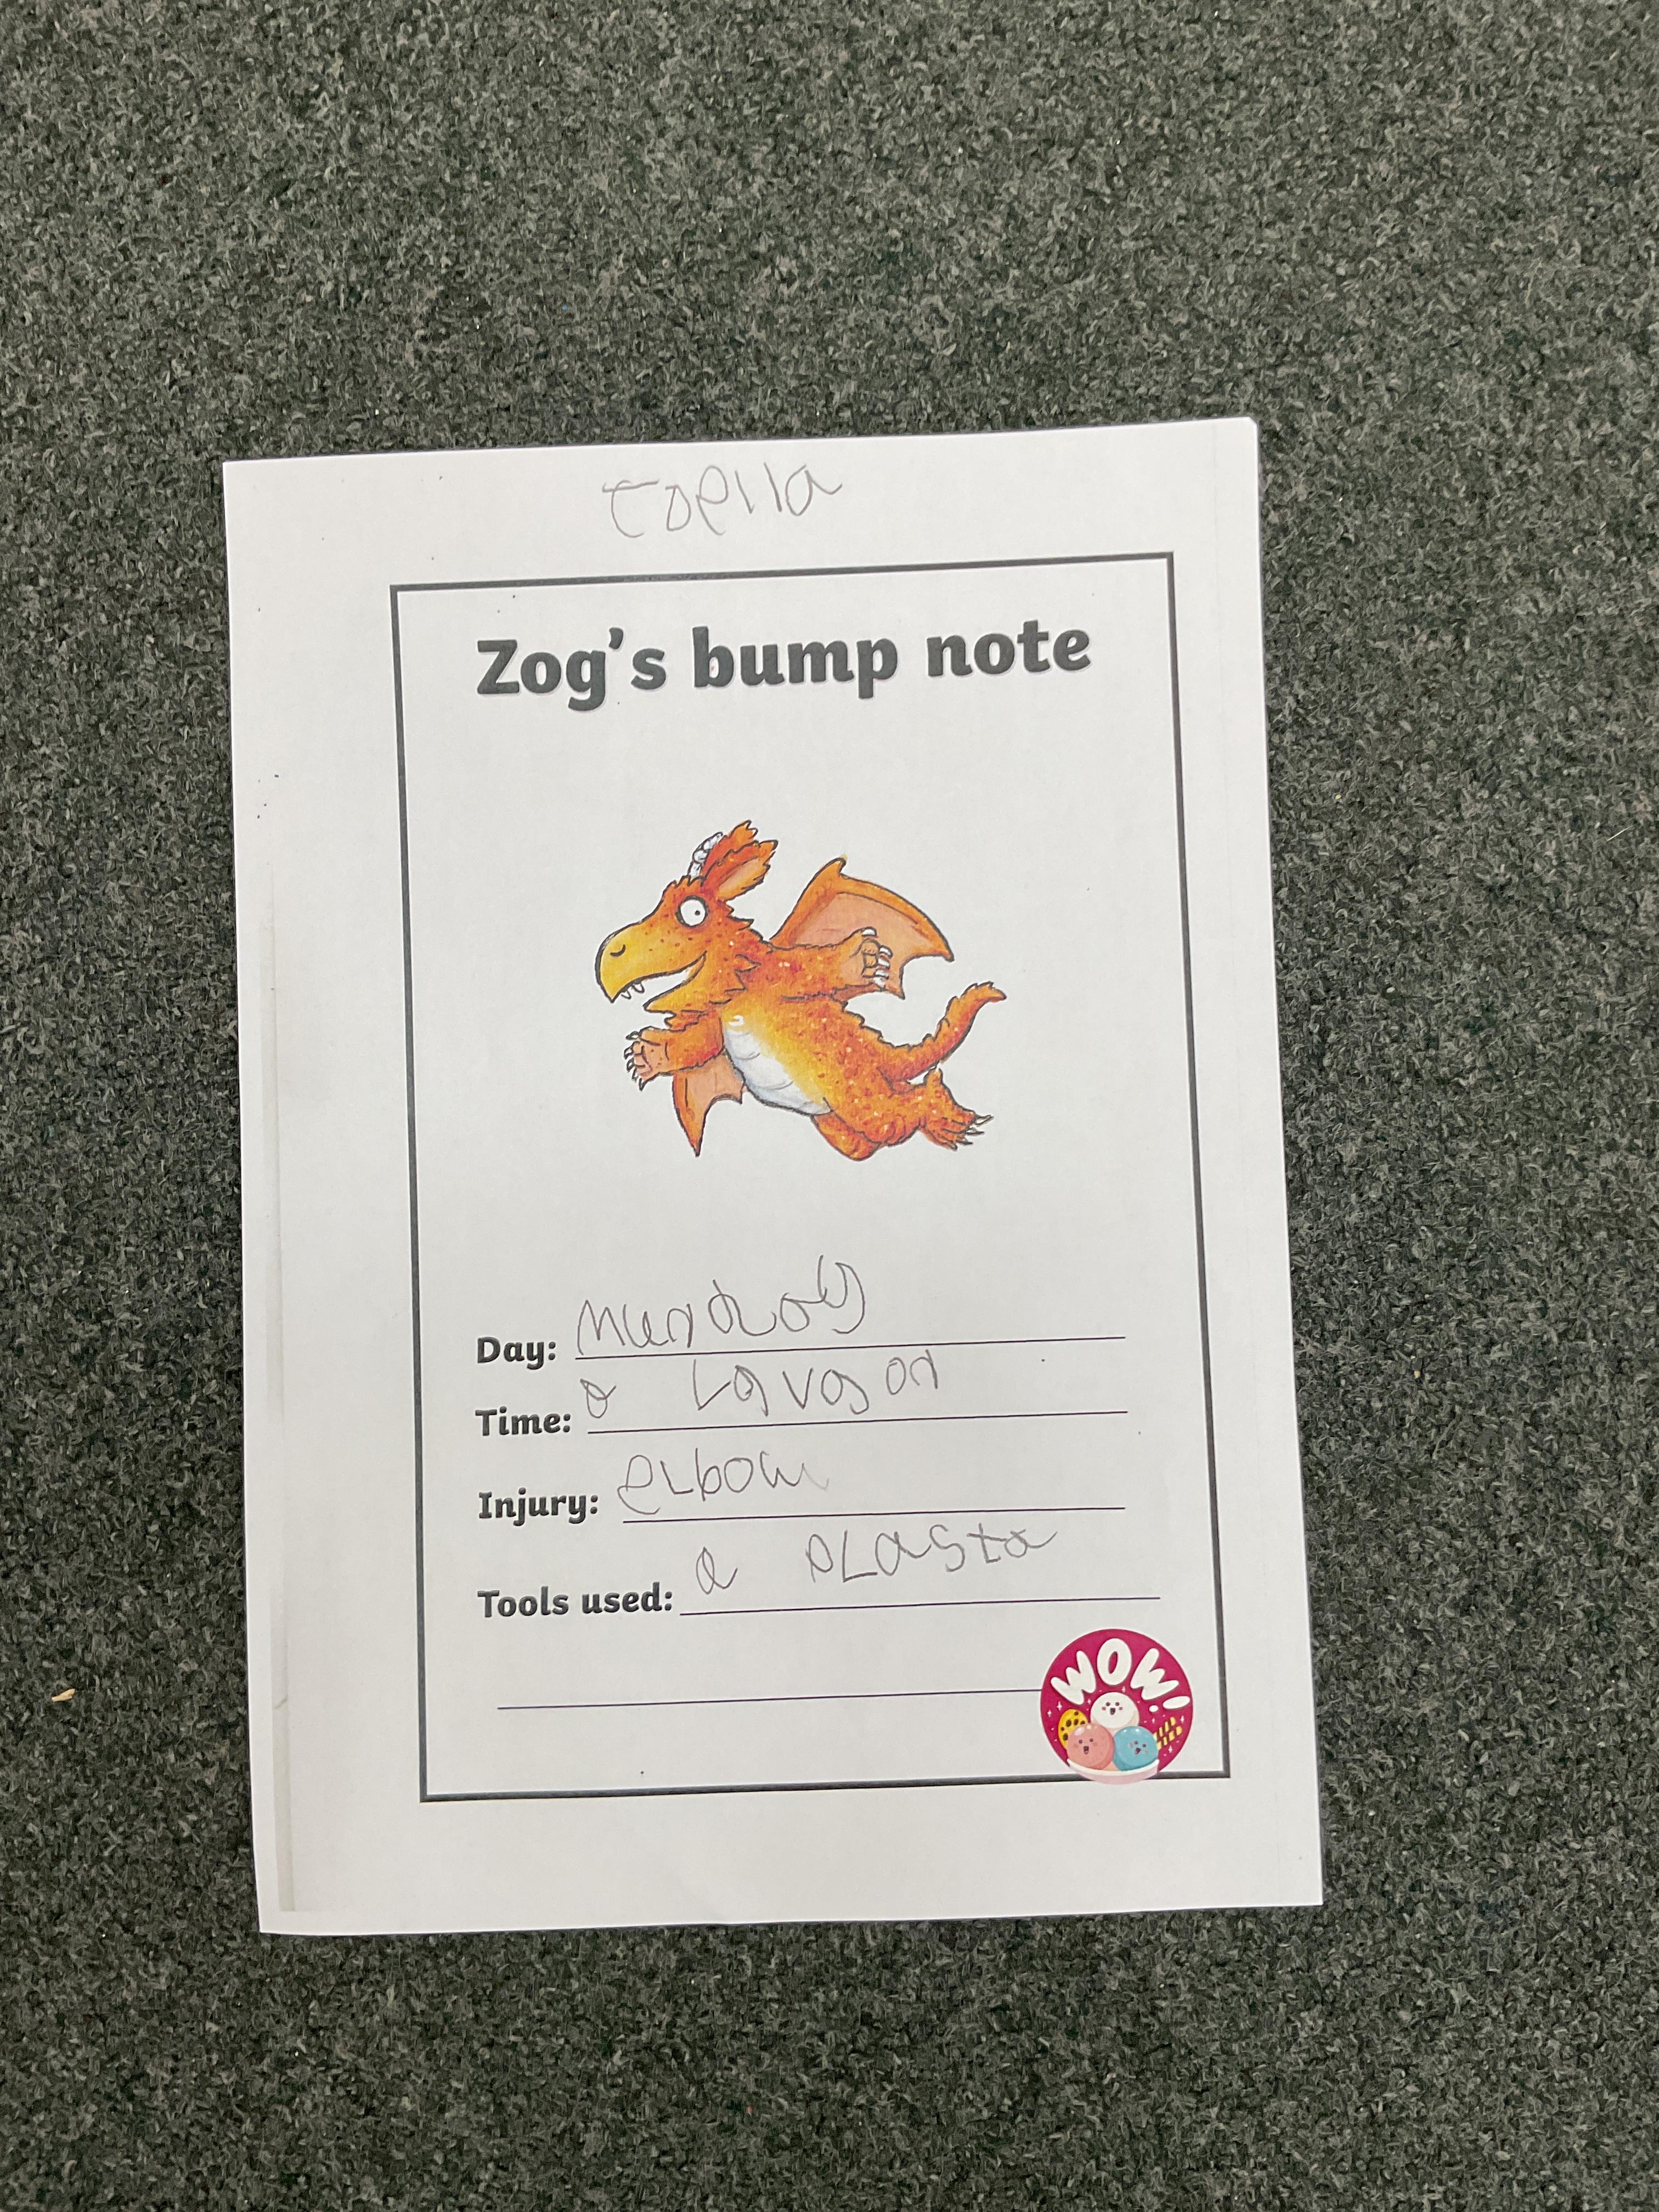 Zog's bump note
Day: Munday
Time: a
Injury: elbow
Tools used: a plasta
WOW!